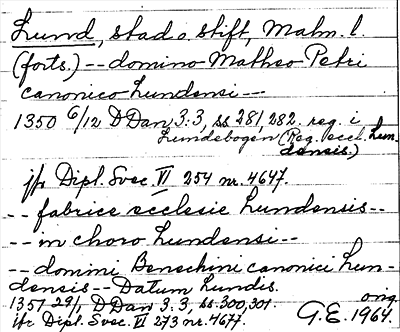 Lund, stad o. stift, Malm. l.
(forts.) -- domino Matheo Petri
canonico Lundensi --
1350 6/12 DDan 3:3, ss 281, 282. reg. i
Lundebogen (Reg. eccl. Lun-
densis.)
jfr Dipl. Svec. VI 254 nr. 4647.
-- fabrice ecclesie Lundensis --
-- in choro Lundensi --
-- domini Benechini canonici Lun-
densis -- Datum Lundis.
1351 29/1, DDan 3:3, ss. 300, 301. orig.
jfr Dipl. Svec. VI 273 nr. 4677. G.E. 1964.